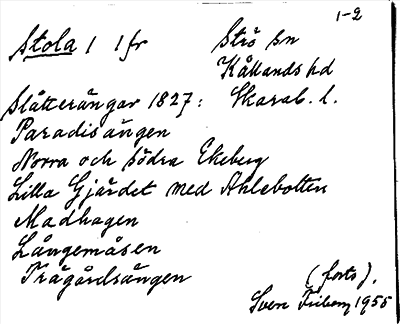 1-2
Stola 1 1 fr Strö sn
Kållands hd
Slåtterängar 1827: Skarab. l.
Paradisängen
Norra och södra Ekeberg
Lilla Gjärdet med Ahlebolten
Madhagen
Långemåsen
Trägårdsängen
(forts).
Sven Friberg 1955